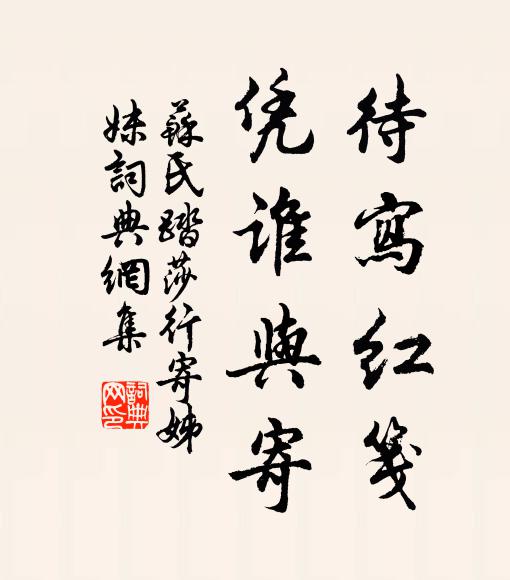 待寫红箋
凭谁與寄
蘇氏踏莎行寄姊
妹詞典網集
詞典
网印